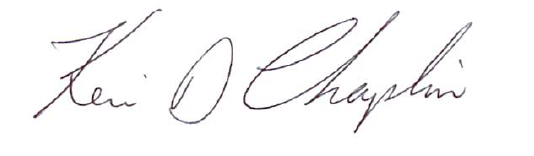 Keri D Chaplin